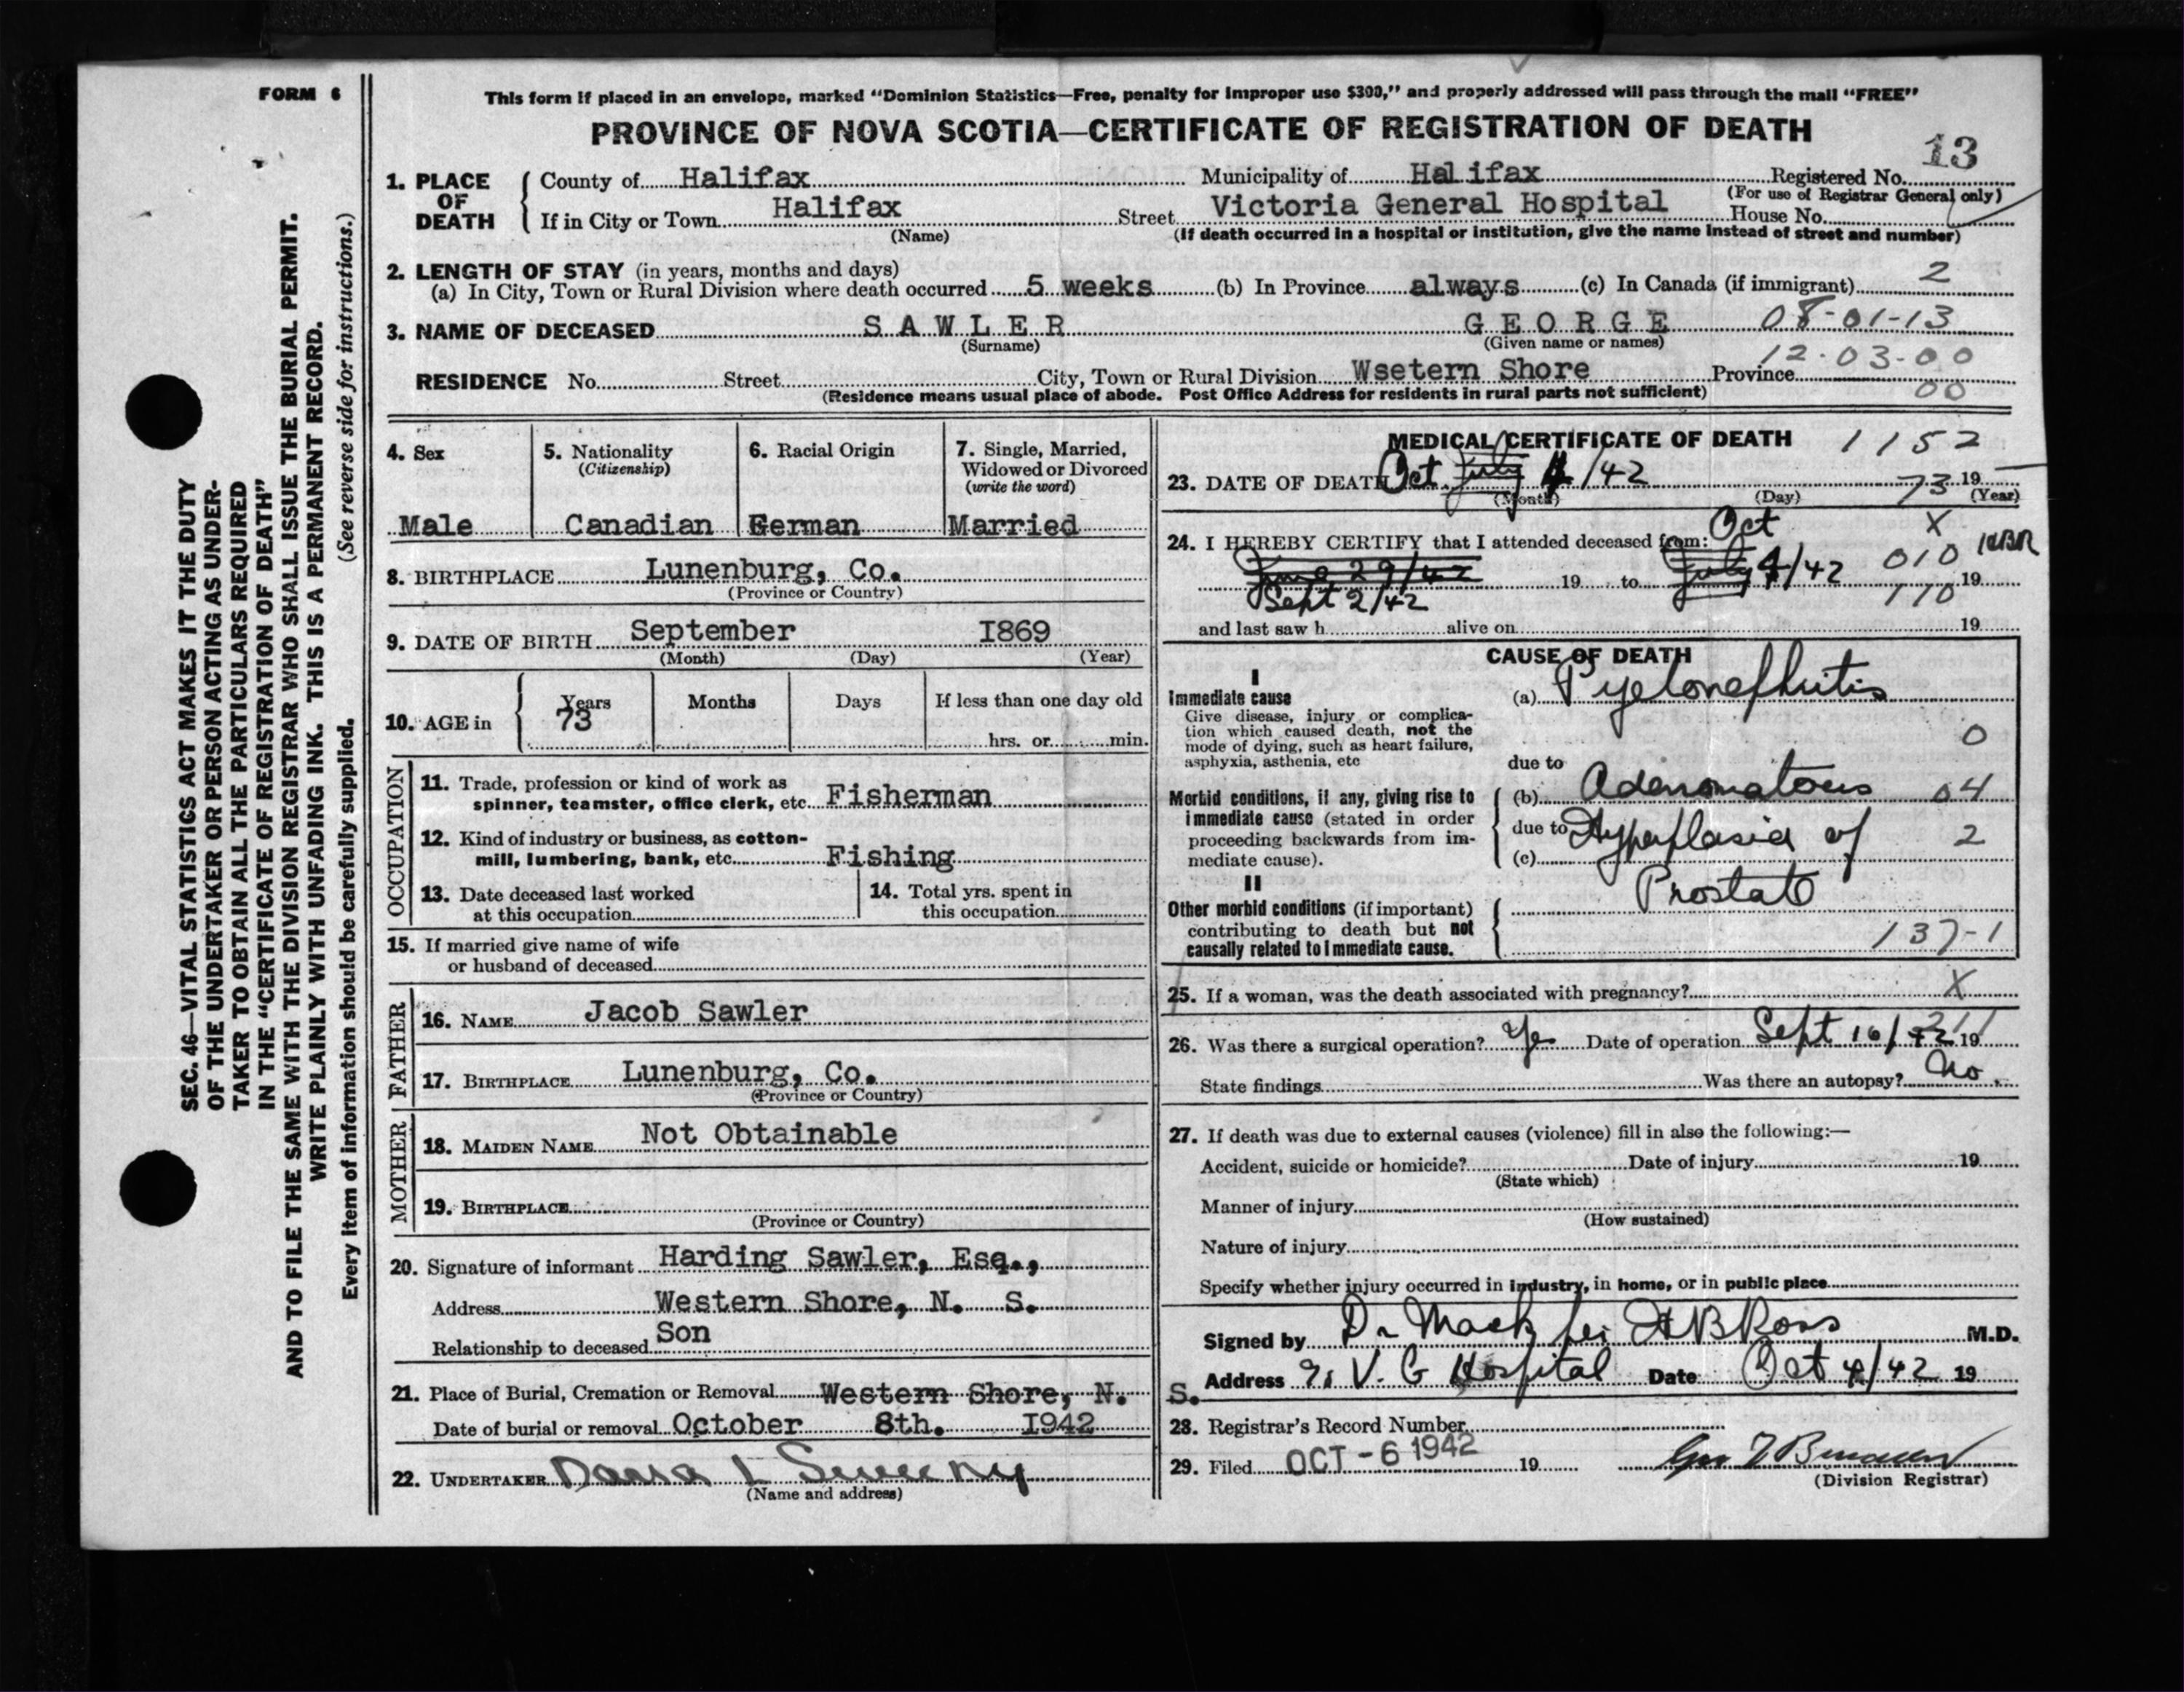 FORM 6
This form if placed in an envelope, marked "Dominion Statistics—Free, penalty for improper use $300," and properly addressed will pass through the mail "FREE"
PROVINCE OF NOVA SCOTIA—CERTIFICATE OF REGISTRATION OF DEATH
13
1. PLACE OF DEATH
County of Halifax Municipality of Halifax Registered No.
(For use of Registrar General only)
If in City or Town Halifax Street Victoria General Hospital House No.
(Name) (If death occurred in a hospital or institution, give the name instead of street and number)
2. LENGTH OF STAY (in years, months and days)
(a) In City, Town or Rural Division where death occurred 5 weeks (b) In Province always (c) In Canada (if immigrant) 2
3. NAME OF DECEASED S A W L E R G E O R G E 08-01-13
(Surname) (Given name or names)
12-03-00
RESIDENCE No. Street City, Town or Rural Division Wsetern Shore Province
(Residence means usual place of abode. Post Office Address for residents in rural parts not sufficient) 00
4. Sex Male
5. Nationality (Citizenship) Canadian
6. Racial Origin German
7. Single, Married, Widowed or Divorced (write the word) Married
8. BIRTHPLACE Lunenburg, Co.
(Province or Country)
9. DATE OF BIRTH September I869
(Month) (Day) (Year)
10. AGE in Years 73 Months Days If less than one day old
hrs. or min.
OCCUPATION
11. Trade, profession or kind of work as
spinner, teamster, office clerk, etc. Fisherman
12. Kind of industry or business, as cotton-
mill, lumbering, bank, etc. Fishing
13. Date deceased last worked
at this occupation
14. Total yrs. spent in
this occupation
15. If married give name of wife
or husband of deceased
FATHER
16. NAME Jacob Sawler
17. BIRTHPLACE Lunenburg, Co.
(Province or Country)
MOTHER
18. MAIDEN NAME Not Obtainable
19. BIRTHPLACE
(Province or Country)
20. Signature of informant Harding Sawler, Esq.,
Address Western Shore, N. S.
Relationship to deceased Son
21. Place of Burial, Cremation or Removal Western Shore, N. S.
Date of burial or removal October 8th. I942
22. UNDERTAKER Sweeny
(Name and address)
MEDICAL CERTIFICATE OF DEATH 1152
23. DATE OF DEATH Oct July 4/42 73 19
(Month) (Day) (Year)
24. I HEREBY CERTIFY that I attended deceased from: Oct X
June 29/42 19 to July 4/42 010 19
Sept 2/42 110
and last saw h alive on 19
CAUSE OF DEATH
I
Immediate cause
Give disease, injury or complica-
tion which caused death, not the
mode of dying, such as heart failure,
asphyxia, asthenia, etc
(a) Pyelonephritis
0
due to
Morbid conditions, if any, giving rise to
immediate cause (stated in order
proceeding backwards from im-
mediate cause).
(b) Adenomatous 04
due to Hyperplasia of 2
(c)
Prostate
II
Other morbid conditions (if important)
contributing to death but not
causally related to immediate cause.
137-1
25. If a woman, was the death associated with pregnancy? X
26. Was there a surgical operation? Yes Date of operation Sept 16/42 19
State findings Was there an autopsy? No.
27. If death was due to external causes (violence) fill in also the following:—
Accident, suicide or homicide? Date of injury 19
(State which)
Manner of injury
(How sustained)
Nature of injury
Specify whether injury occurred in industry, in home, or in public place
Signed by Dr Mack per HB Ross M.D.
Address V. G Hospital Date Oct 4/42 19
28. Registrar's Record Number
29. Filed OCT - 6 1942 19
(Division Registrar)
SEC. 46—VITAL STATISTICS ACT MAKES IT THE DUTY
OF THE UNDERTAKER OR PERSON ACTING AS UNDER-
TAKER TO OBTAIN ALL THE PARTICULARS REQUIRED
IN THE "CERTIFICATE OF REGISTRATION OF DEATH"
AND TO FILE THE SAME WITH THE DIVISION REGISTRAR WHO SHALL ISSUE THE BURIAL PERMIT.
WRITE PLAINLY WITH UNFADING INK. THIS IS A PERMANENT RECORD.
Every item of information should be carefully supplied. (See reverse side for instructions.)